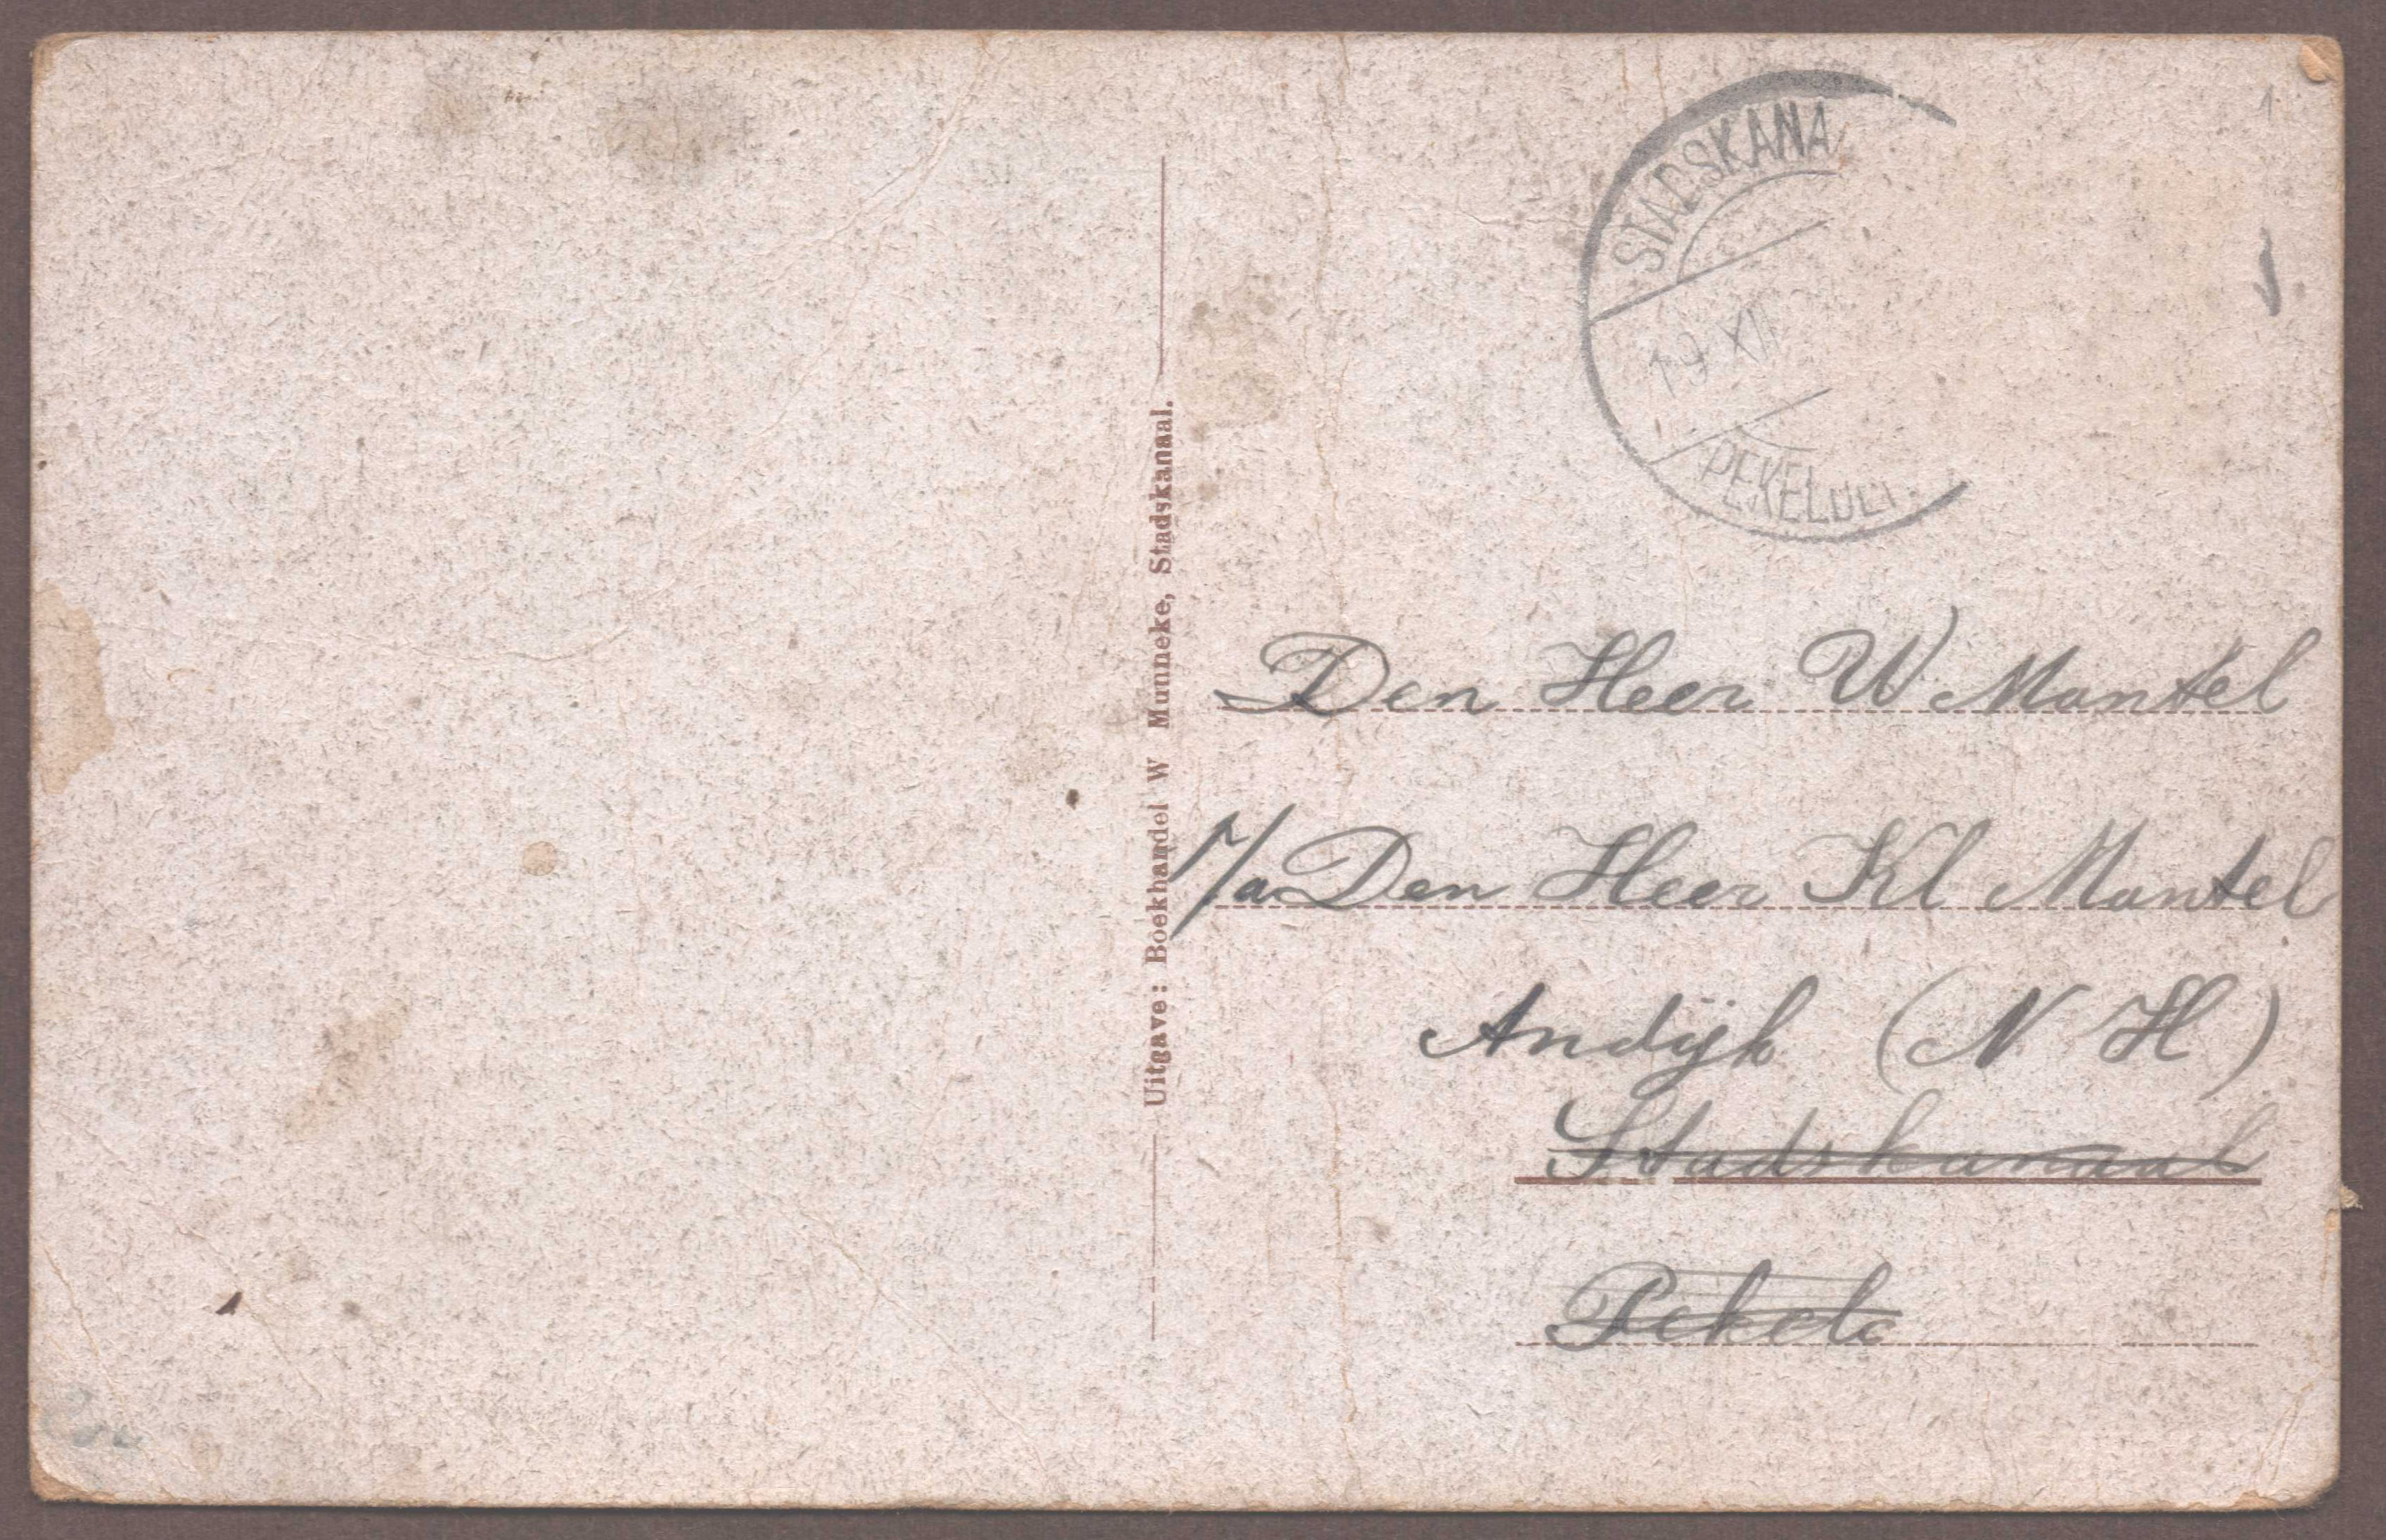 STADSKANA
19 XII
PEKELDE
Uitgave: Boekhandel W Munneke, Stadskanaal.
Den Heer W Mantel
p/a Den Heer Kl Mantel
Andijk (N H)
Stadskanaal
Pekela